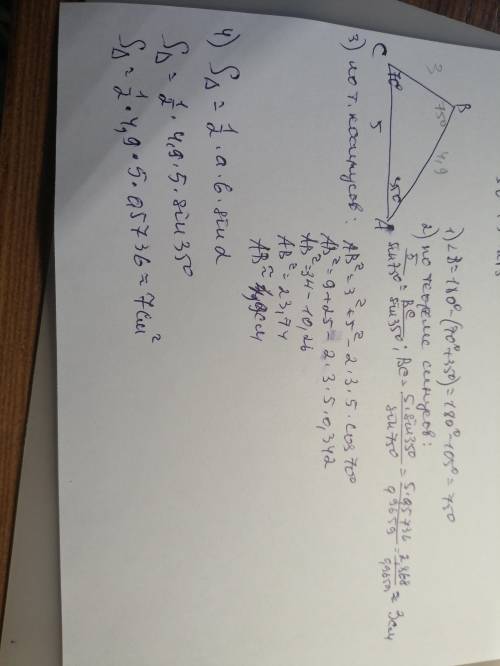 C
3
B
70°
75°
5
4,9
35°
A
1) ∠B=180°-(70°+35°)=180°-105°=75°
2) по теореме синусов:
5/sin75° = BC/sin35°; BC = 5·sin35°/sin75° = 5·0,5736/0,9659 = 2,868/0,9659 ≈ 3см
3) по т. косинусов:
AB²=3²+5²-2·3·5·cos70°
AB²=9+25-2·3·5·0,342
AB²=34-10,26
AB²=23,74
AB≈4,9см
4) S△=1/2·a·b·sinα
S△=1/2·4,9·5·sin35°
S△=1/2·4,9·5·0,5736=7см²